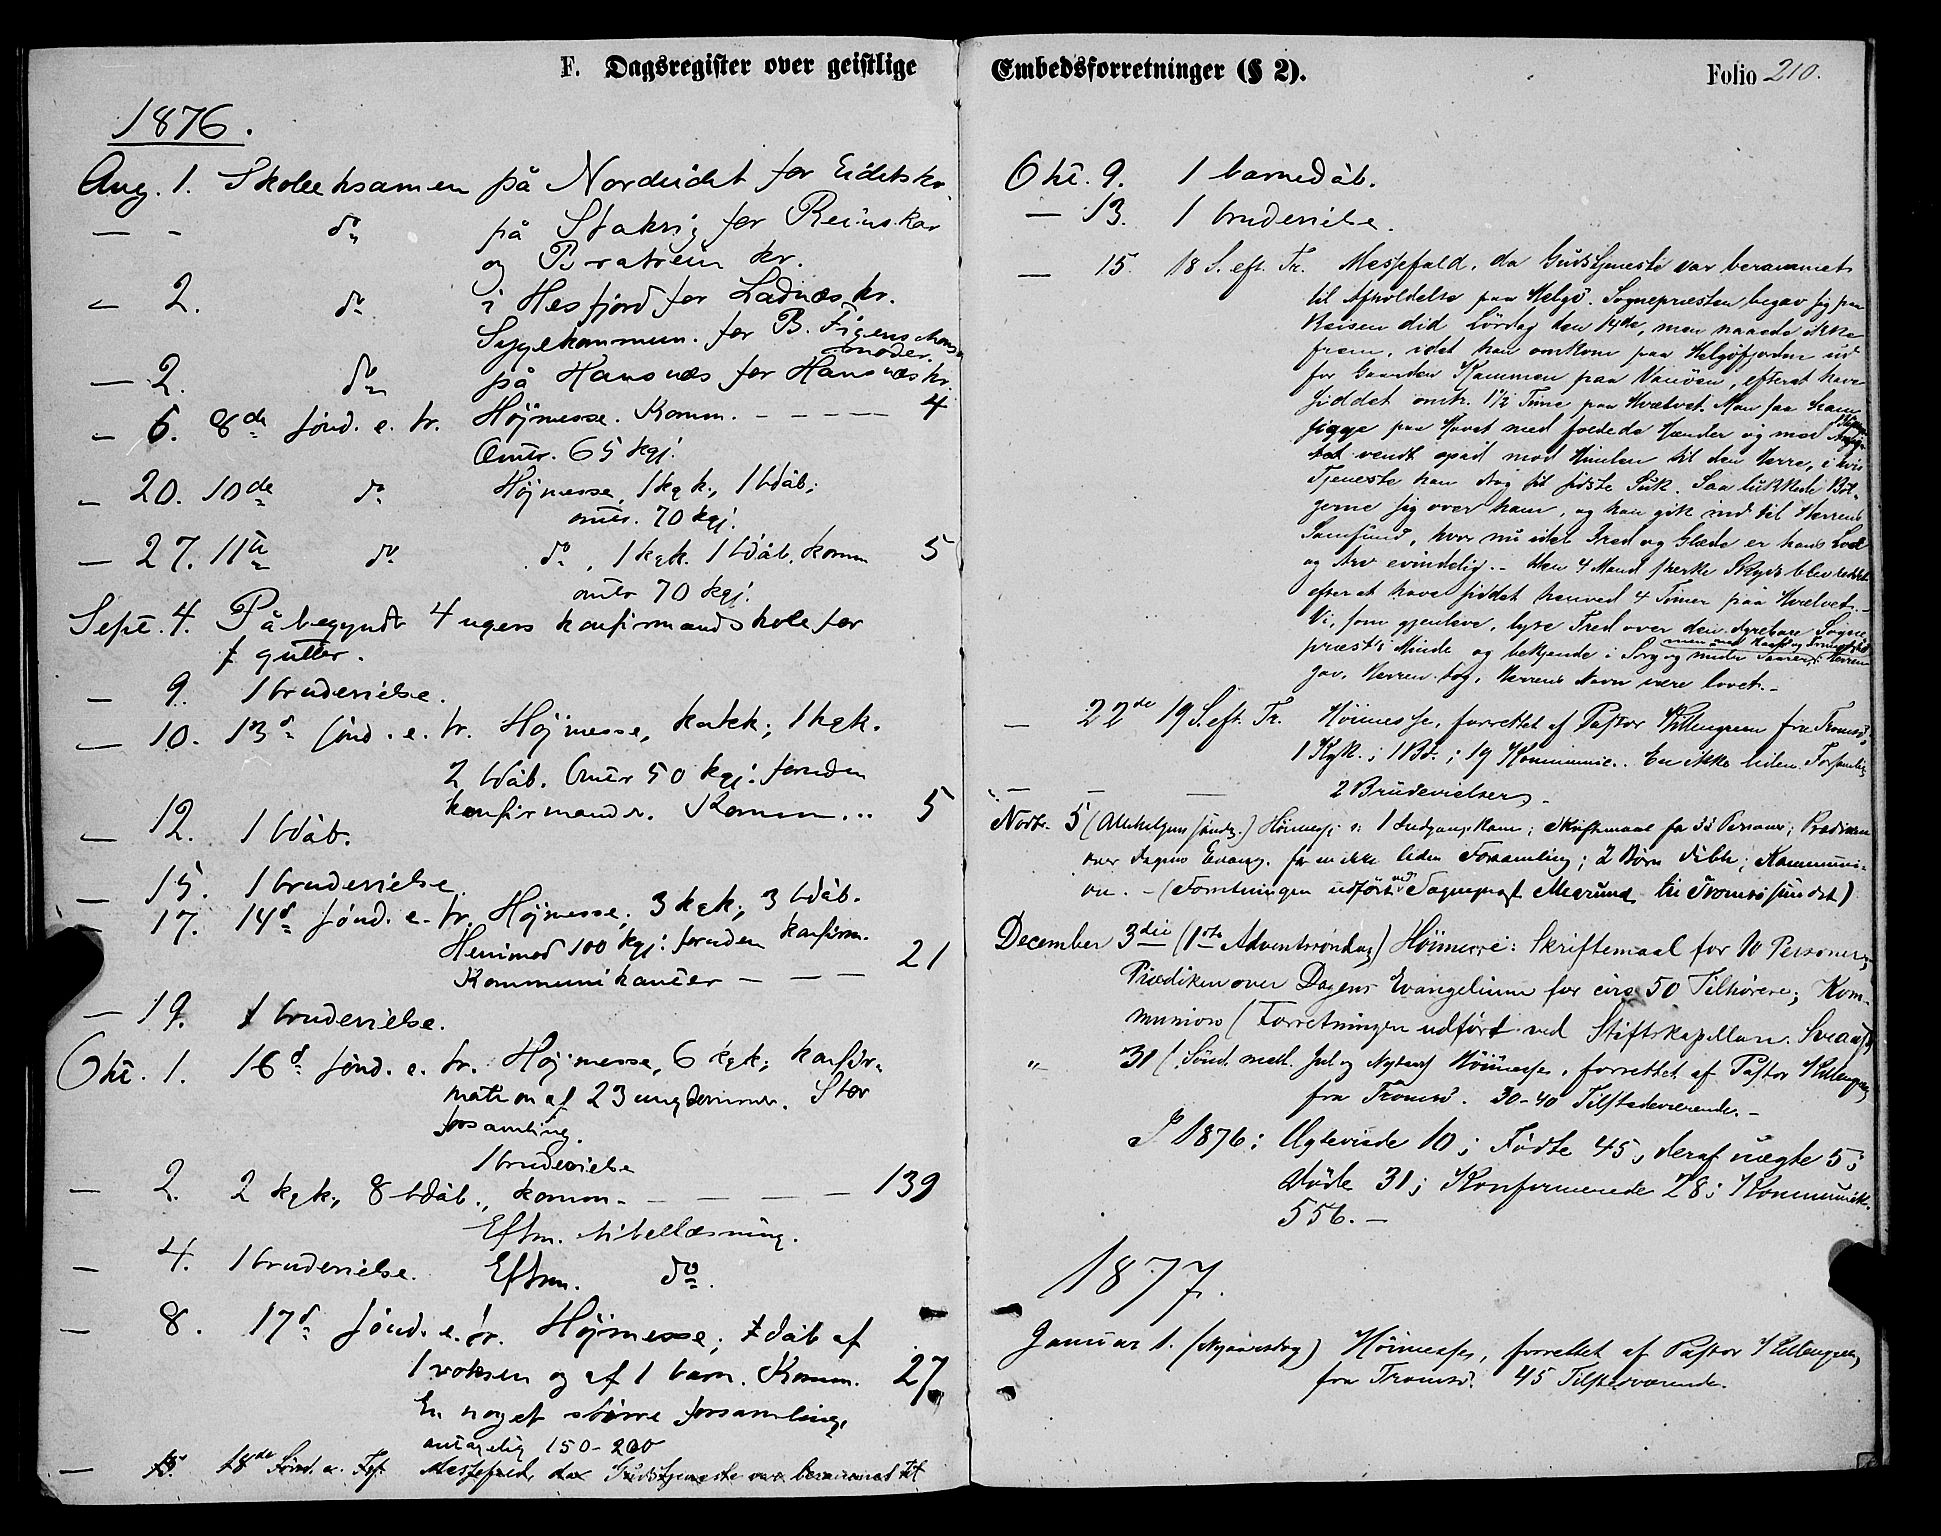 F. Dagsregister over geistlige
1876.
Aug. 1. Skoleeksamen på Nordeidet for Eidets kr.
— - do på Stakvig for Reinskar
og Bratrein kr.
— 2. do i Hesfjord for Ladnæs kr.
Sygekommun. for B. Figenschous
moder.
— 2. do på Hansnæs for Hansnæs kr.
— 6. 8de sønd. e. tr. Højmesse. Komm. - - - - 4
Omtr. 65 kgj.
— 20. 10de do Højmesse, 1 kgk., 1 bdåb;
omtr. 70 kgj.
— 27. 11te do do, 1 kgk. 1 bdåb. komm 5
omtr 70 kgj.
Sept. 4. Påbegyndt 4 ugers konfirmandskole for
gutter.
— 9. 1 brudevielse.
— 10. 13d sønd. e. tr. Højmesse, katek; 1 kgk.
2 bdåb. Omtr 50 kgj. foruden
konfirmander. Komm... 5
— 12. 1 bdåb.
— 15. 1 brudevielse.
— 17. 14d sønd. e. tr. Højmesse; 3 kgk; 3 bdåb.
Henimod 100 kgj. foruden konfirm.
Kommunikanter — — — 21
— 19. 1 brudevielse.
Okt. 1. 16d sønd. e. tr. Højmesse, 6 kgk; konfir-
mation af 23 ungdommer. Stor
forsamling.
1 brudevielse
— 2. 2 kgk; 8 bdåb., komm. — — — — 139
Eftm. bibellæsning.
— 4. 1 brudevielse. Eftm. do.
— 8. 17d sønd. e. tr. Højmesse; dåb af
1 voksen og af 1 barn. Komm. 27
En noget større forsamling,
antagelig 150-200
— 15. 18de Sønd. e. Messefald, da Gudstjeneste var berammet til
Embedsforretninger (§ 2).
Folio 210.
Okt. 9. 1 barnedåb.
— 13. 1 brudevielse.
— 15. 18 S. eft. Tr. Messefald, da Gudstjeneste var berammet
til Afholdelse paa Helgö. Sognepræsten begav sig paa
Reisen did Lördag den 14de, men naaede ikke
frem, idet han omkom paa Helgöfjorden ud
for Gaarden Kammen paa Vanöen, efterat have
siddet omtr. 1½ Time paa Hvælvet. Man saa ham
ligge paa Havet med foldede Hænder og med
vendt opad mod Himlen til den Herre, i hvis
Tjeneste han drog sit sidste Suk. Saa lukkede Böl-
gerne sig over ham, og han gik ind til Herrens
Samfund, hvor nu idel Fred og Glæde er hans Lod
og Arv evindelig. - Den 4 Mand stærke Skyds blev reddet
efterat have siddet henved 4 Timer paa Hvælvet. -
Vi, som gjenleve, lyse Fred over den dyrebare Sogne-
præst's Minde og bekjende i Sorg og under Taarer, men med Haab og Frimodighed: Herren
gav, Herren tog, Herrens Navn være lovet. -
— 22de 19 S. eft. Tr. Höimesse, forrettet af Pastor Killengreen fra Tromsö,
1 Kgk.; 1 Bd.; 19 Kommunic.. En ikke liden Forsamling
— — — 2 Brudevielser. -
Novbr. 5 (Allehelgens söndg.) Höimesse: 1 Indgangskone; Skriftemaal for 33 Personer; Prædiken
over Dagens Evang. for en ikke liden Forsamling; 2 Börn döbte; Kommuni-
on. - (Forretningen udfört ved Sognepræst til Tromsösundet)
December 3die (1ste Adventssöndag) Höimesse: Skriftemaal for 10 Personer;
Prædiken over Dagens Evangelium for circ 50 Tilhörere; Kom-
munion (Forretningen udfört ved Stiftskapellan
" 31 (Sönd. mell. Jul og Nytaar) Höimesse, forrettet af Pastor Killengreen
fra Tromsö. 30-40 Tilstedeværende. -
I 1876: Ægteviede 10; Födte 45, deraf uægte 5;
Döde 31; Konfirmerede 28; Kommunik.
556. -
1877.
Januar 1. (Nytaarsdag) Höimesse, forrettet af Pastor Killengreen
fra Tromsö. 45 Tilstedeværende.